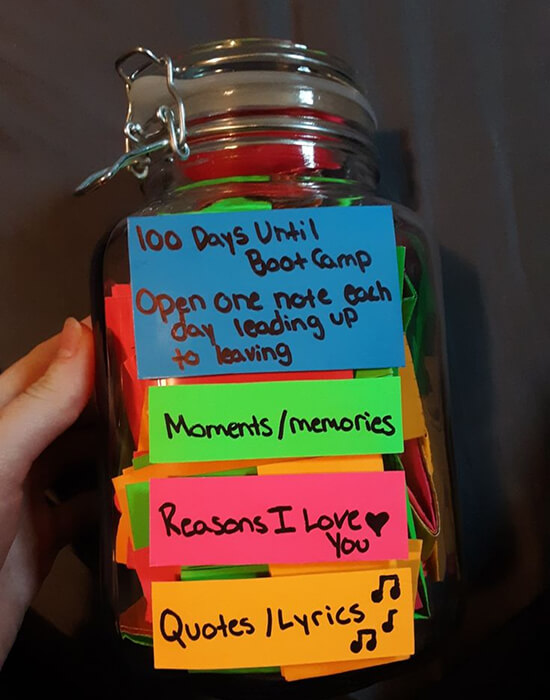 100 Days Until
Boot Camp
Open one note each
day leading up
to leaving
Moments/memories
Reasons I Love
You
Quotes/Lyrics